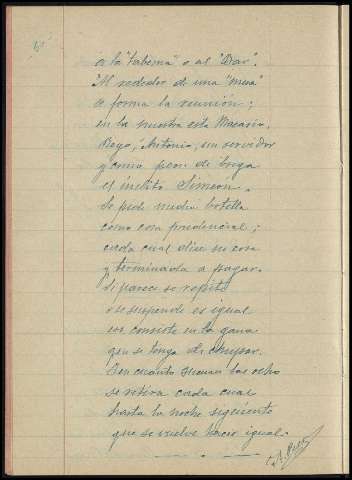 a la "Taberna" o al "Bar".
"Al rededor de una "mesa"
se forma la reunión;
en la nuestra esta Macario,
Royo, "Antonio, un servidor
y como peon de brega
el inclito Simeon.
Se pide media botella
como cosa prudencial;
cada cual dice su cosa
y terminada a pagar.
Si parece se repite
o se suspende es igual
eso consiste en la gana
que se tenga de chupar.
En cuanto suenan las ocho
se retira cada cual
hasta la noche siguiente
que se vuelve hacer igual.